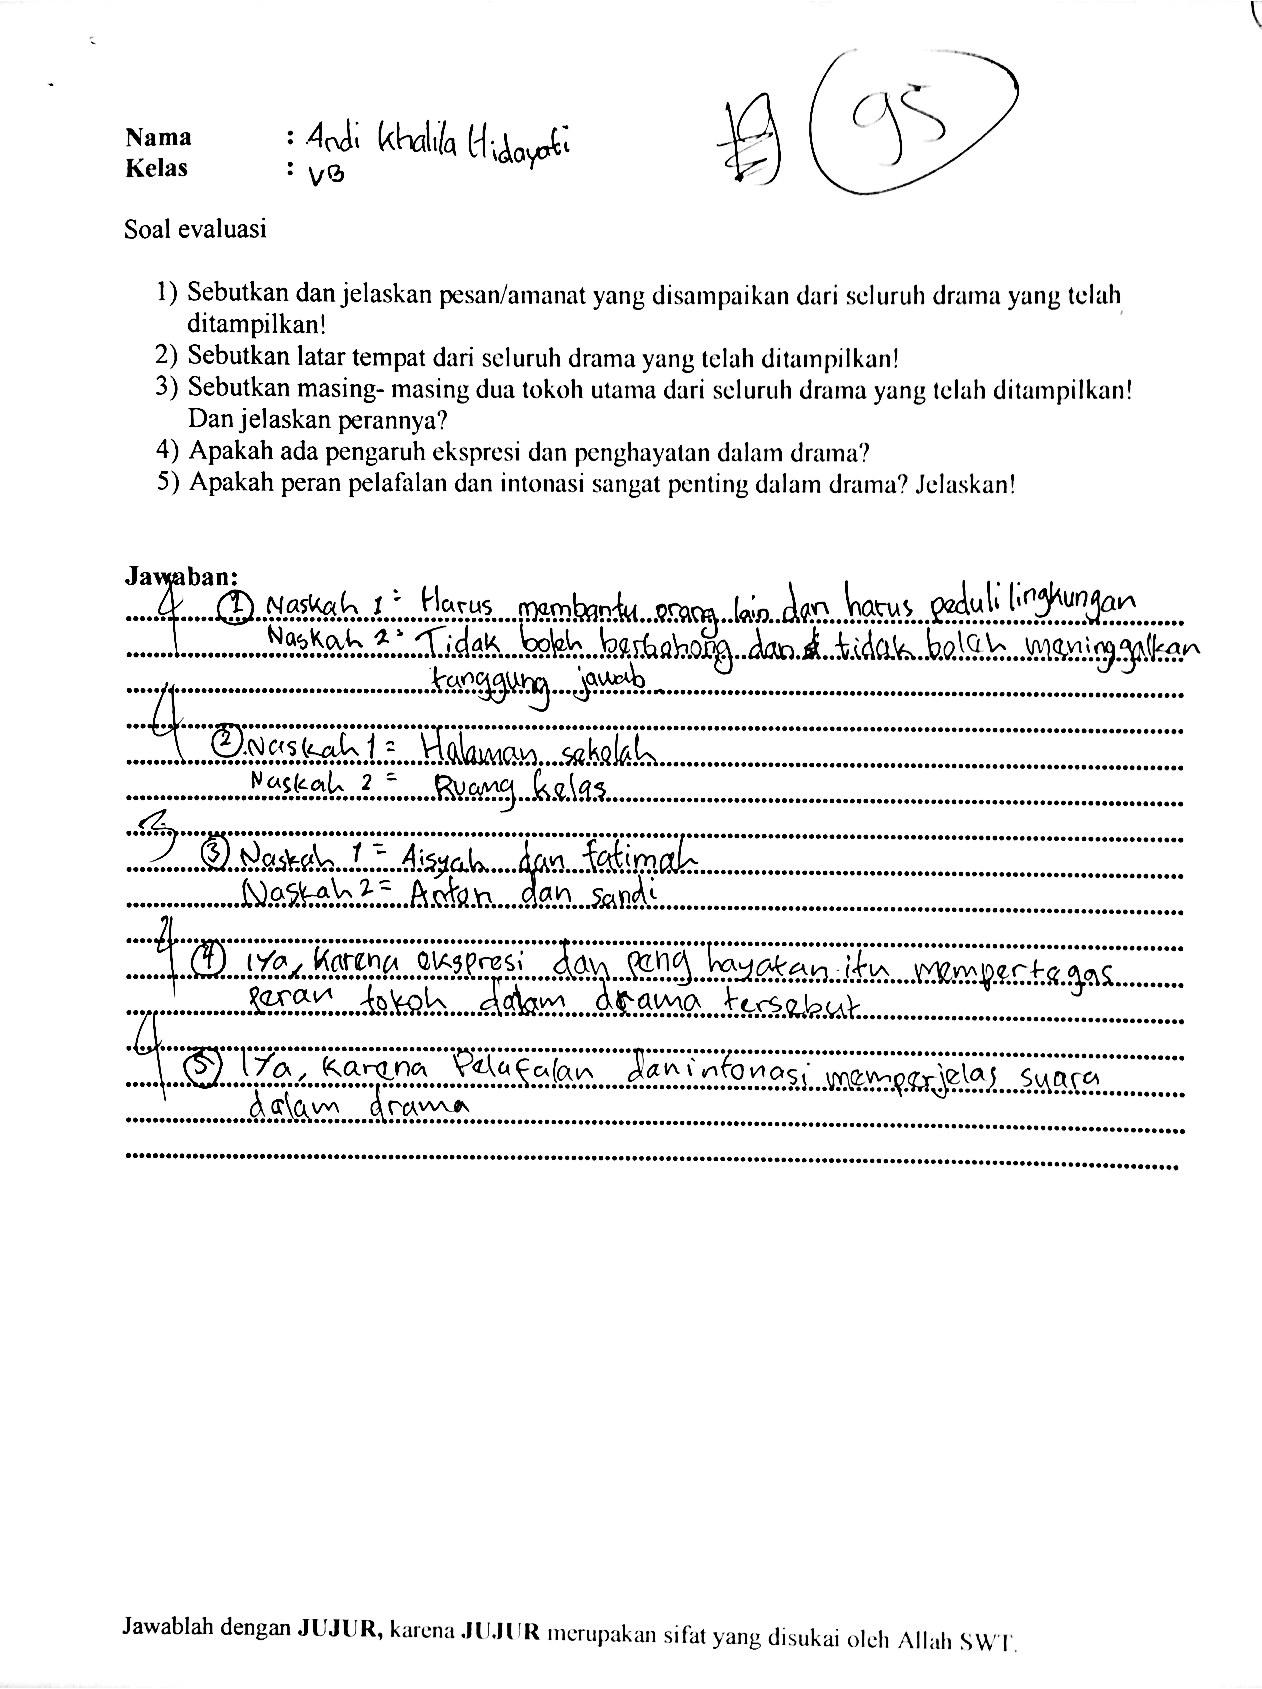 95
Nama : Andi Khalila Hidayati
Kelas : VB
Soal evaluasi
1) Sebutkan dan jelaskan pesan/amanat yang disampaikan dari seluruh drama yang telah
ditampilkan!
2) Sebutkan latar tempat dari seluruh drama yang telah ditampilkan!
3) Sebutkan masing- masing dua tokoh utama dari seluruh drama yang telah ditampilkan!
Dan jelaskan perannya?
4) Apakah ada pengaruh ekspresi dan penghayatan dalam drama?
5) Apakah peran pelafalan dan intonasi sangat penting dalam drama? Jelaskan!
Jawaban:
4 1 Naskah 1 = Harus membantu orang lain dan harus peduli lingkungan
Naskah 2 = Tidak boleh berbohong dan tidak boleh meninggalkan
tanggung jawab
4 2 Naskah 1 = Halaman sekolah
Naskah 2 = Ruang kelas
3 3 Naskah 1 = Aisyah dan fatimah
Naskah 2 = Anton dan sandi
4 4 Iya, Karena ekspresi dan peng hayatan itu mempertegas
peran tokoh dalam drama tersebut
4 5 Iya, karena Pelafalan dan intonasi memperjelas suara
dalam drama
Jawablah dengan JUJUR, karena JUJUR merupakan sifat yang disukai oleh Allah SWT.